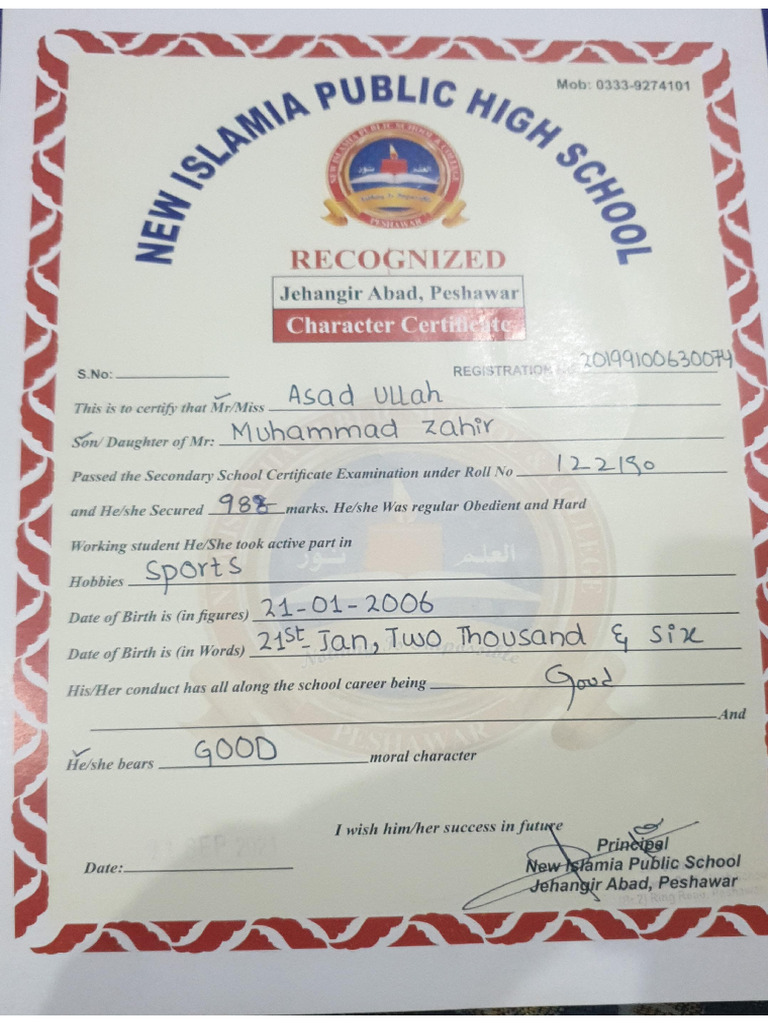 Mob: 0333-9274101
NEW ISLAMIA PUBLIC HIGH SCHOOL
NEW ISLAMIA PUBLIC SCHOOL & COLLEGE
العلم نور
Nothing Is Impossible
PESHAWAR
RECOGNIZED
Jehangir Abad, Peshawar
Character Certificate
S.No:
REGISTRATION 20199100630074
This is to certify that Mr/Miss Asad Ullah
Son/ Daughter of Mr: Muhammad Zahir
Passed the Secondary School Certificate Examination under Roll No 122190
and He/she Secured 988 marks. He/she Was regular Obedient and Hard
Working student He/She took active part in
Hobbies Sports
Date of Birth is (in figures) 21-01-2006
Date of Birth is (in Words) 21st-Jan, Two Thousand & Six
His/Her conduct has all along the school career being Good
And
He/she bears GOOD moral character
I wish him/her success in future
Principal
Date:
New Islamia Public School
Jehangir Abad, Peshawar